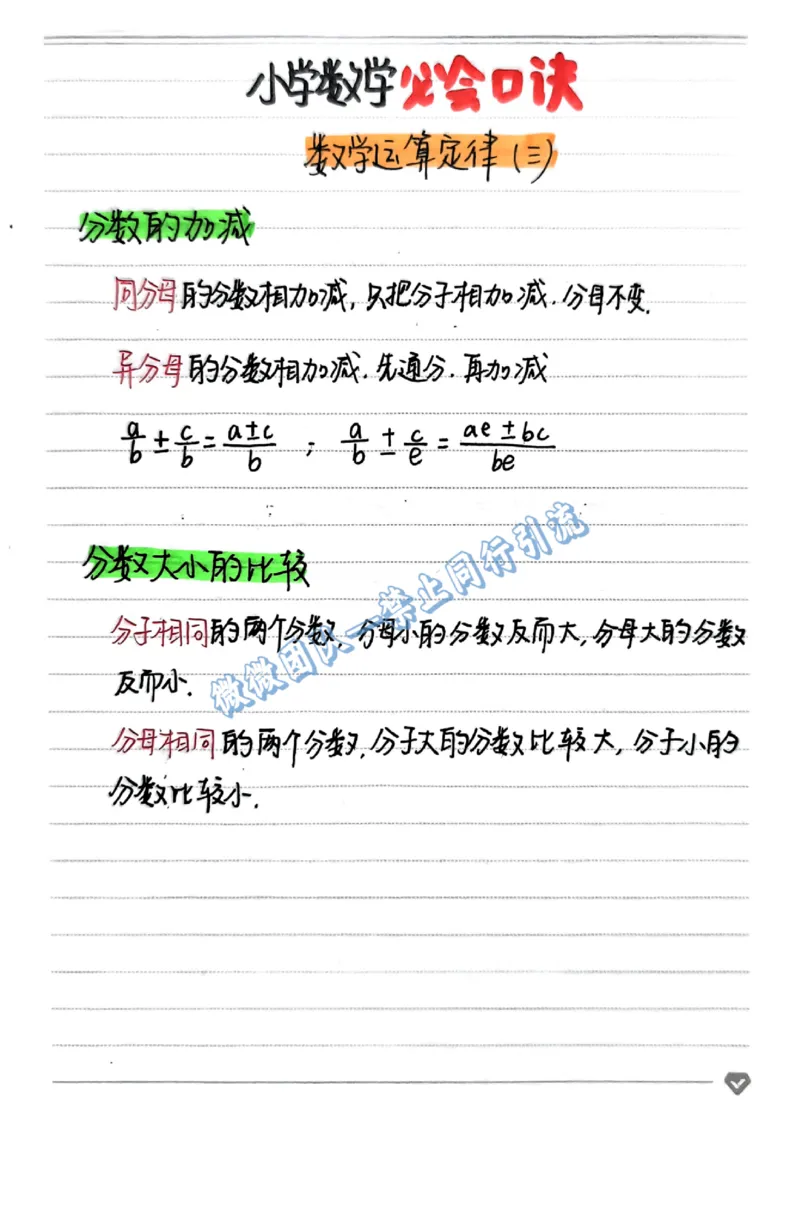 小学数学必会口诀
数学运算定律(三)
分数的加减
同分母的分数相加减,只把分子相加减.分母不变.
异分母的分数相加减.先通分.再加减
a/b ± c/b = a±c/b ; a/b ± c/e = ae±bc/be
分数大小的比较
分子相同的两个分数,分母小的分数反而大,分母大的分数
反而小.
分母相同的两个分数,分子大的分数比较大,分子小的
分数比较小.
微微团队一禁止同行引流